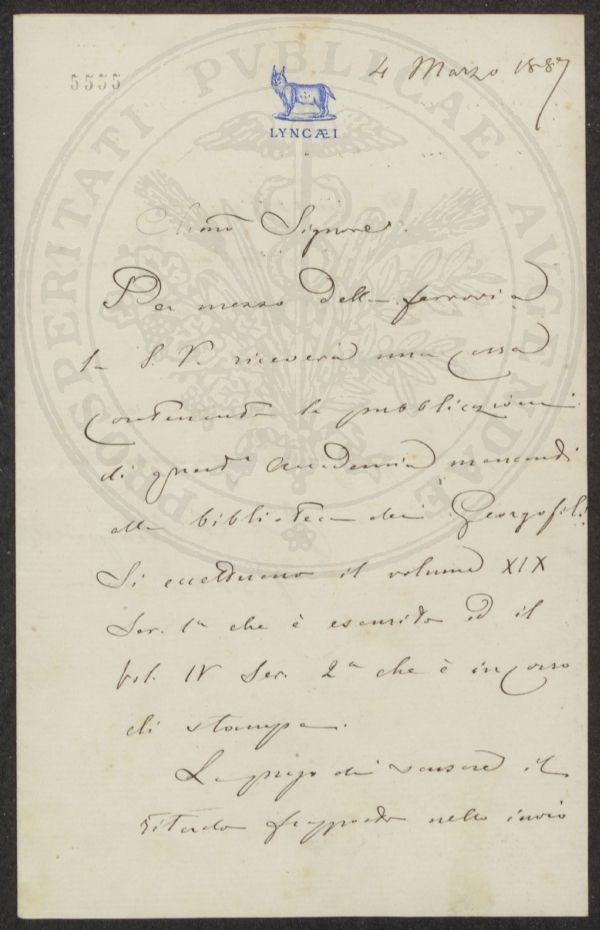 5555
4 Marzo 1887
LYNCÆI
PROSPERITATI PVBLICAE AVGENDAE
Chimo Signore
Per mezzo della ferrovia
la S. V. riceverà una cassa
contenente le pubblicazioni
di quest' Accademia mancanti
alla biblioteca dei Georgofili.
Si eccettuano il volume XIX
Ser. 1a che è esaurito ed il
Vol. IV Ser. 2a che è in corso
di stampa.
La prego di scusare il
ritardo frapposto nello invio